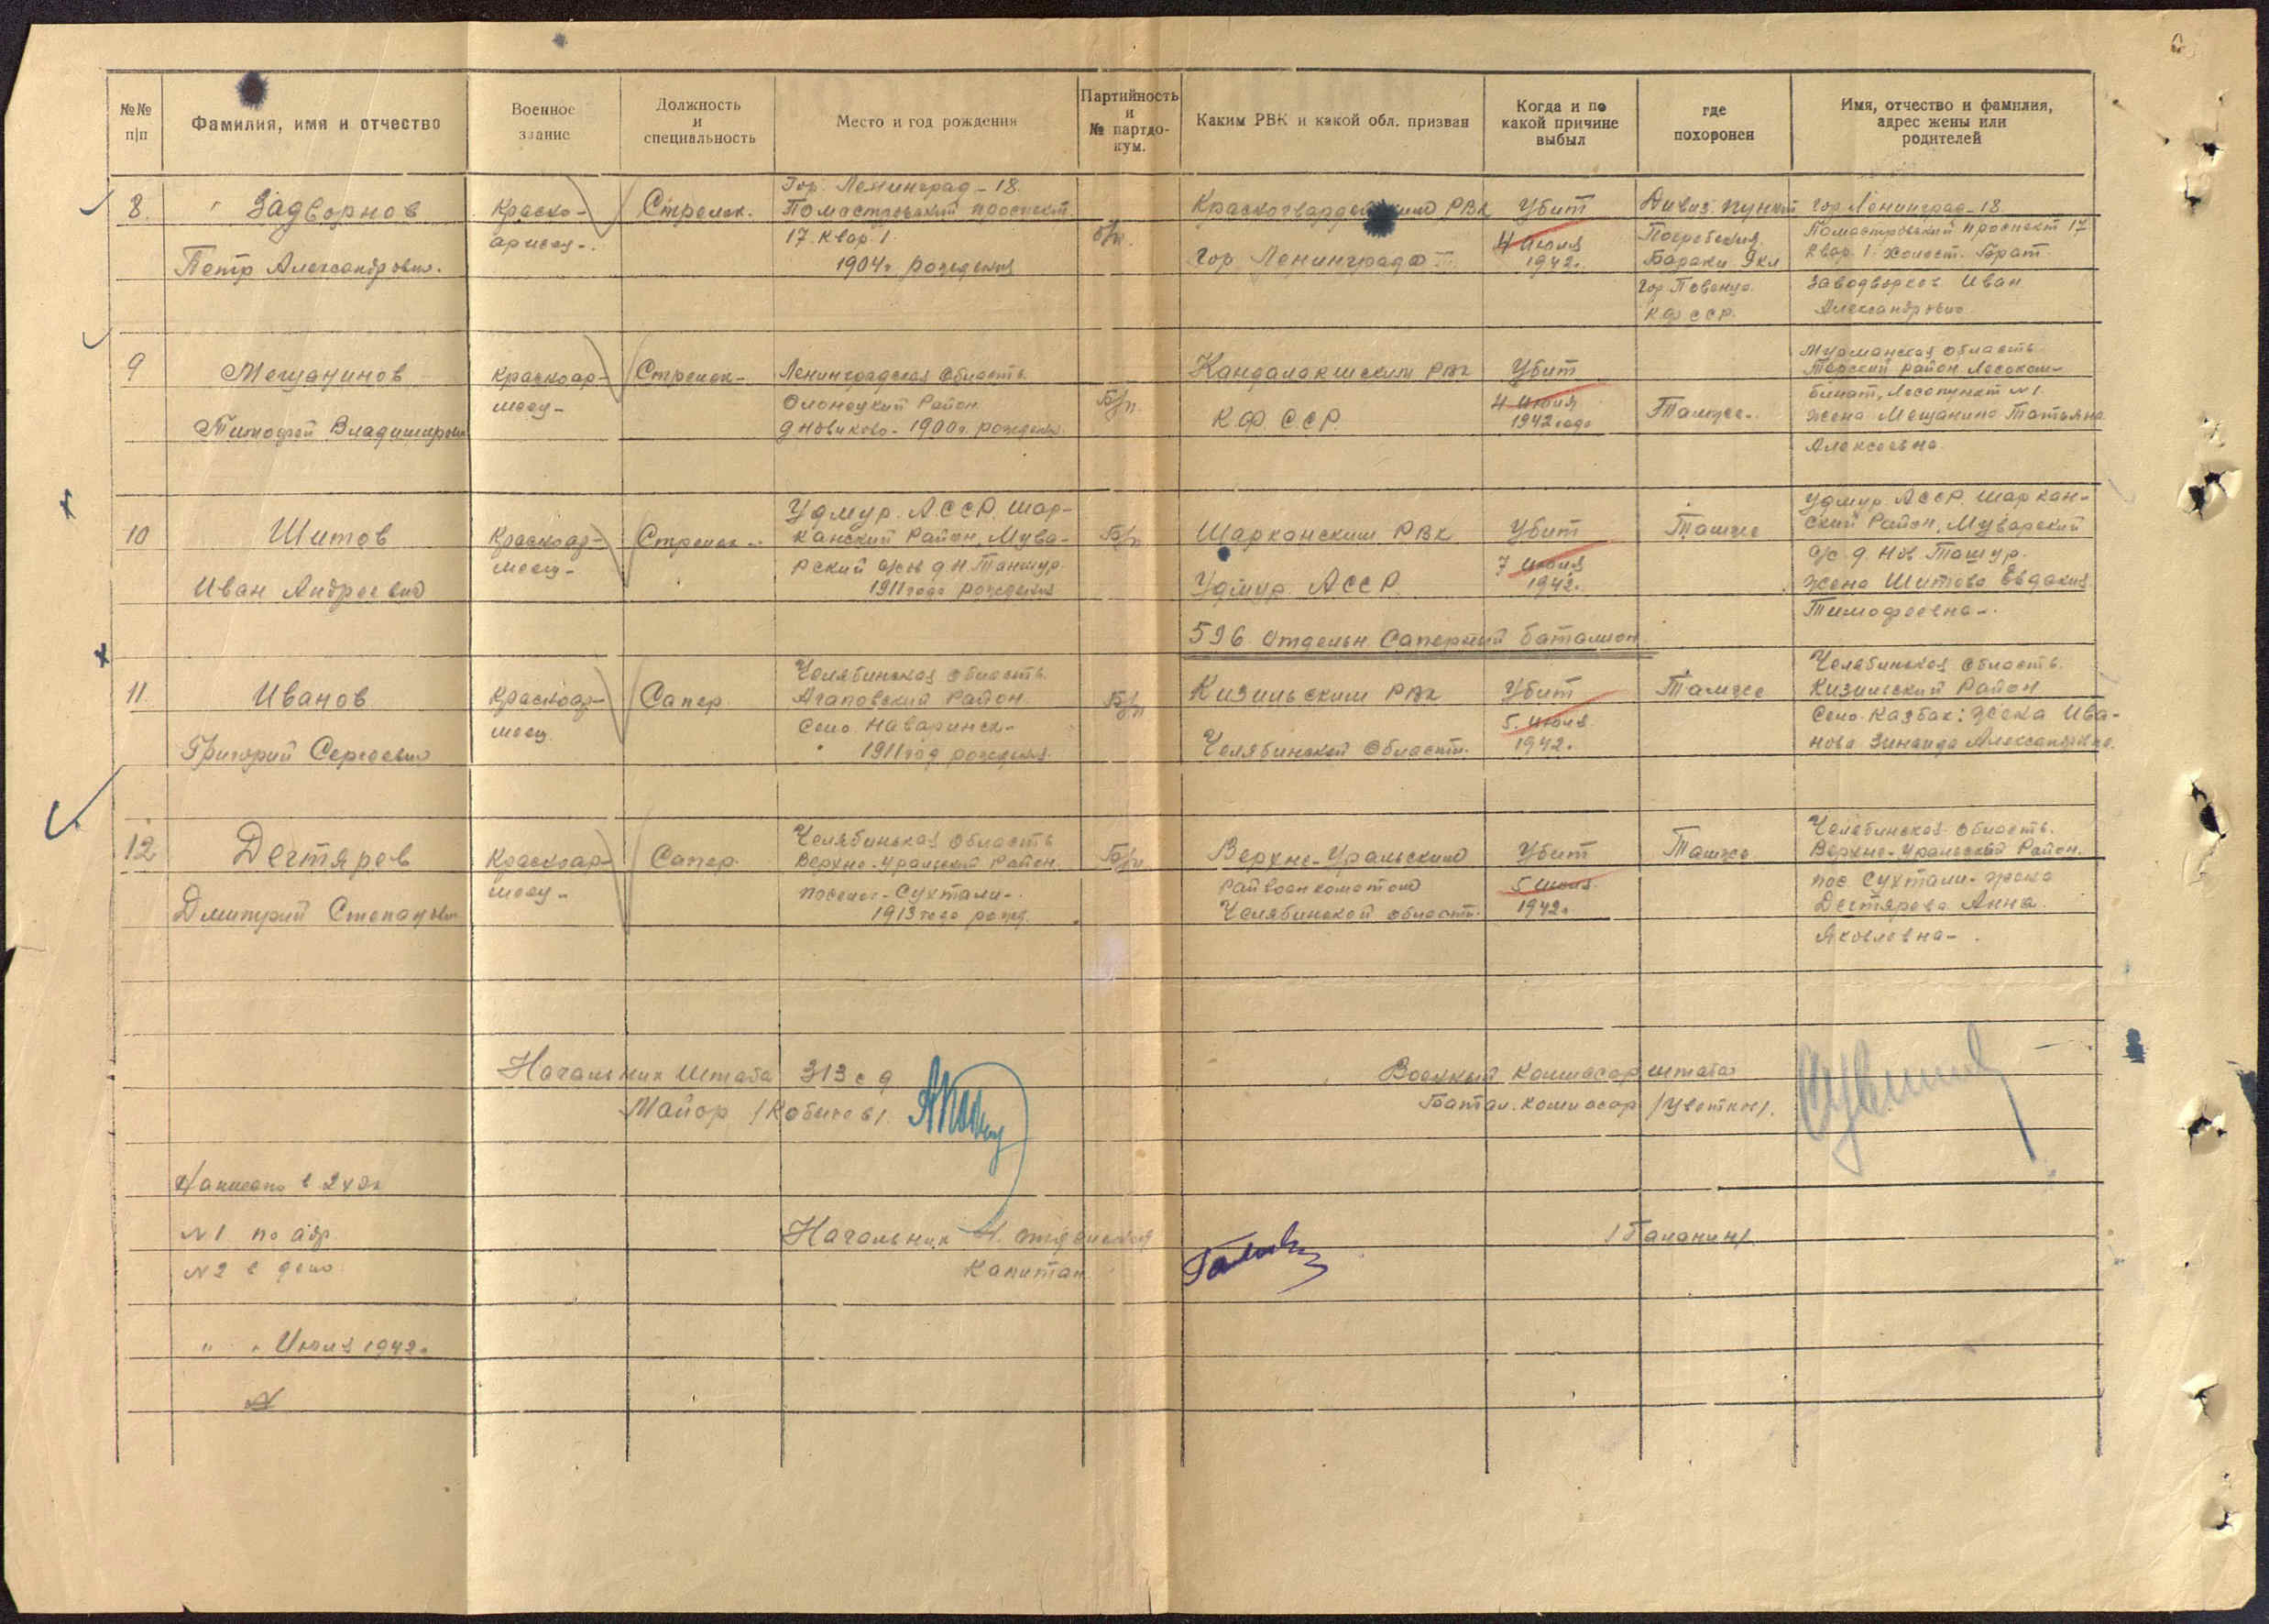 №№ п|п
Фамилия, имя и отчество
Военное звание
Должность и специальность
Место и год рождения
Партийность и № партдо-кум.
Каким РВК и какой обл. призван
Когда и по какой причине выбыл
где похоронен
Имя, отчество и фамилия, адрес жены или родителей
8.
Задворнов
Петр Александрович.
Красно-
армеец-.
Стрелок.
Гор. Ленинград-18.
17. Квар. 1.
1904г. рождения
б/п.
Красногвардейским РВК
Гор Ленинграда
Убит
4 июля
1942г.
Дивиз. пункт
Погребения.
Бараки 9кл
Гор. Повенца
К.Ф ССР.
гор Ленинград-18.
проспект 17
Квар. 1. холост. Брат
Заводворнов Иван
Александрович
9
Мещанинов
Тимофей Владимирович
Красноар-
меец-
Стрелок-
Ленинградская область
Олонецкий Район
д Новиково-1900г. рождения.
Б/п.
Кандалакшским РВК
К.Ф. С.С.Р.
Убит
4 июля
1942 года
Тамже-.
Мурманская область
Терский район Лесоком-
бинат, Лесопункт №1.
жена Мещанина Татьяна
Алексеевна.
10
Шитов
Иван Андреевич
Красноар-
меец-
Стрелок-.
Удмур. АССР. Шар-
канский Район, Мува-
рский с/сов д Н Таншур.
1911 года рождения
Б/п
Шарканским РВК
Удмур. АССР.
Убит
7 июля
1942г.
Тамже
Удмур. АССР. Шаркан-
ский Район, Муварский
с/с. д. Нов Ташур.
жена Шитова Евдокия
Тимофеевна-.
596 Отдельн Саперный баталион.
11.
Иванов
Григорий Сергеевич
Красноар-
меец.
Сапер.
Челябинская область.
Агаповский Район.
Село Наваринск-
1911 год рождения.
Б/п
Кизильским РВК
Челябинской Области.
Убит
5. июля.
1942г.
Тамже
Челябинская область.
Кизильский Район
Село Казбах: жена Ива-
нова Зинаида Александровна.
12
Дегтярев
Дмитрий Степанович
Красноар-
меец-
Сапер.
Челябинская область
Верхне-Уральский Район.
поселок-Сухтали-.
1913 года рожд.
Б/п.
Верхне-Уральским
Райвоенкоматом
Челябинской области.
Убит
5 июля.
1942г.
Тамже
Челябинская область.
Верхне-Уральский Район.
пос Сухтали-жена
Дегтярева Анна.
Яковлевна-.
Начальник Штаба 313 с д
Майор /Кобычев/.
Военный комиссар штаба
Батал. комиссар /Цветков/.
Написано в 2х эк
№1 по адр.
№2 в дело.
Начальник 4. отделения
Капитан
/Галанин/.
" " Июля 1942г.
№